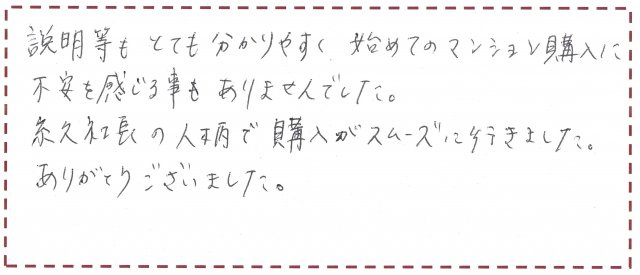 説明等もとても分かりやすく 始めてのマンション購入に
不安を感じる事もありませんでした。
糸久社長の人柄で購入がスムーズに行きました。
ありがとうございました。